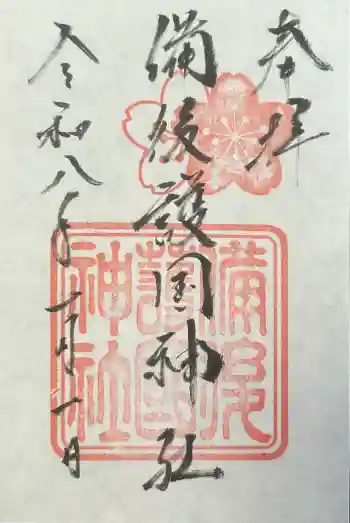 奉拝
備後護国神社
令和八年二月一日
備後護國神社